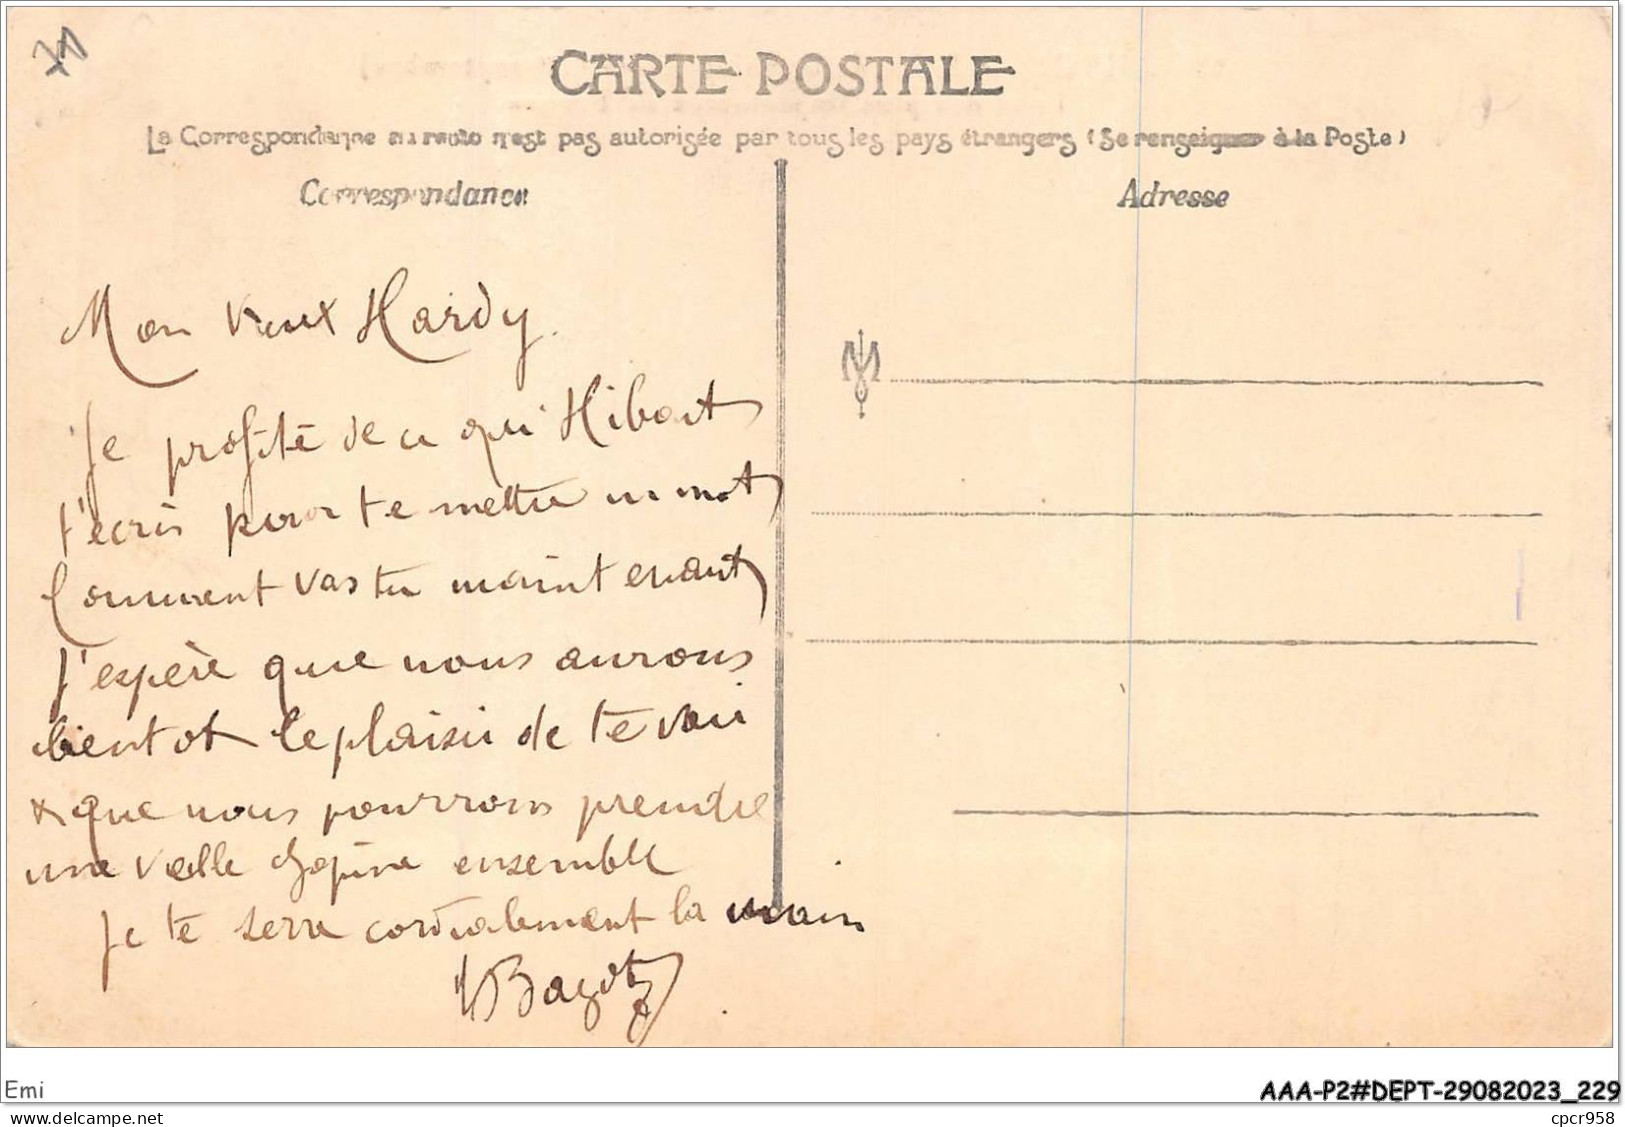 CARTE POSTALE
La Correspondance au recto n'est pas autorisée par tous les pays étrangers (Se renseigner à la Poste)
Correspondance
Adresse
Mon vieux Hardy.
Je profite de ce qui Hibart
t'ecris pour te mettre un mot
Comment vas tu maintenant
J'espère que nous aurons
bientot le plaisir de te voir
& que nous pourrons prendre
une vielle chopine ensemble
Je te serre cordialement la main
Bagot
Emi
AAA-P2#DEPT-29082023_229
cpcr958